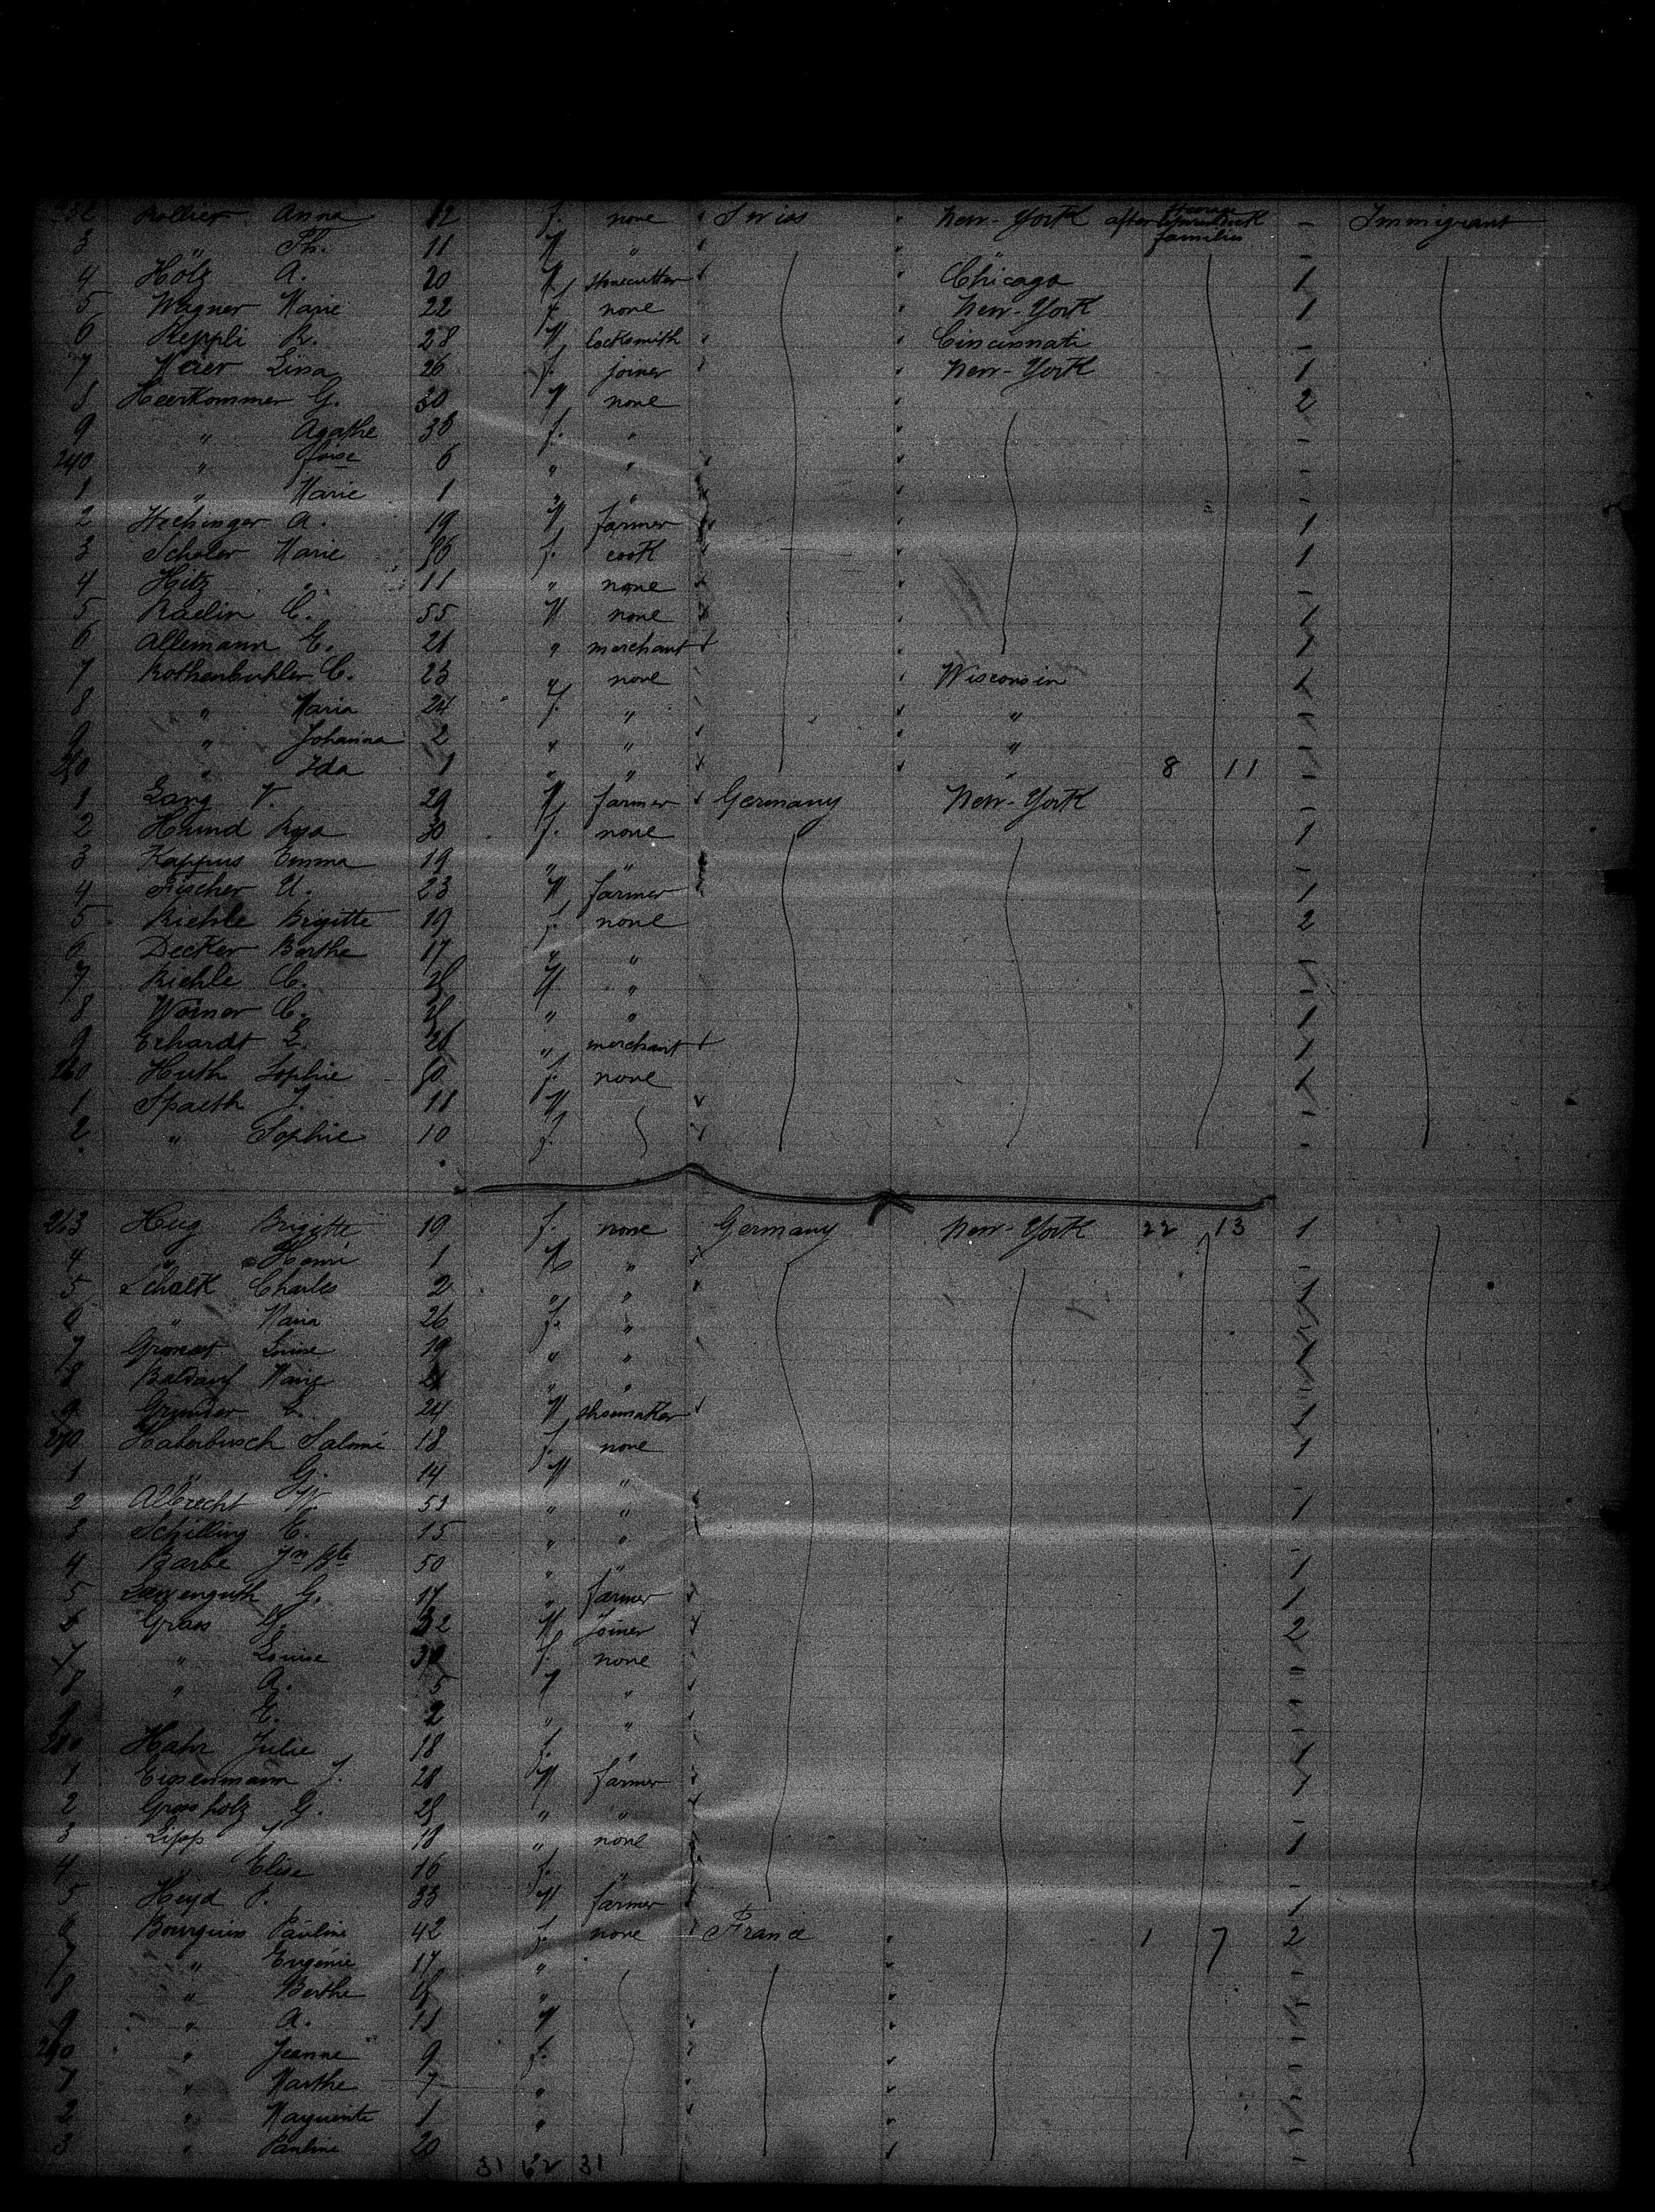 232 Rollier Anna 12 f. none Swiss New-York after Immigrant
families
3 " Th. 11 M "
4 Hölz A. 20 M Stonecutter Chicago 1
5 Wagner Marie 22 f. none New-York 1
6 Reppli R. 28 M locksmith Cincinnati -
7 Meier Lina 26 f. joiner New-York 1
8 Heerkommer G. 30 M none 2
9 " Agathe 38 f. " -
240 " 6 " " -
1 " Marie 1 " " -
2 Hechinger A. 19 M farmer 1
3 Scholer Marie 36 f. cook 1
4 Hitz " 11 " none -
5 Baelin C. 55 M none 1
6 Allemann E. 21 " merchant 1
7 Rothenbuhler C. 23 " none Wisconsin 1
8 " Maria 24 f. " " -
9 " Johanna 2 " " " -
250 " Ida 1 " " " 8 11 -
1 Lang V. 29 M farmer Germany New-York -
2 Hund Rosa 30 f. none 1
3 Kappus Emma 19 " " -
4 Fischer U. 23 M farmer 1
5 Riehle Brigitte 19 f. none 2
6 Decker Berthe 17 " " -
7 Riehle C. M " -
8 Wörner C. " " 1
9 Erhardt E. " merchant 1
260 Huth Sophie f. none 1
1 Spaeth J. 11 M -
2 " Sophie 10 f. -
263 Hug Brigitte 19 f. none Germany New-York 22 13 1
4 " Henri 1 M " -
5 Schalk Charles 2 " " 1
6 " Maria 26 f. " -
7 Louise 19 " " 1
8 Baldauf Marie " " -
9 Grunder E. 24 M shoemaker 1
270 Haberbusch Salomé 18 f. none 1
1 " G. 14 M " -
2 Albrecht W. 51 " " 1
3 Schilling E. 15 " " -
4 Barbe Jn Bte 50 " " 1
5 G. 17 " farmer 1
6 Grass G. 32 M Joiner 2
7 " Louise f. none -
8 " A. 5 M " -
9 E. 2 " " -
280 Hahn Julie 18 f. " 1
1 Eisenmann J. 28 M farmer 1
2 Grosholz G. 28 " " -
3 Lipp J. 18 " none 1
4 " Elise 16 f. " -
5 Heyd J. 33 M farmer 1
6 Bourguin Pauline 42 f. none France 1 7 2
7 " Eugénie 17 " -
8 " Berthe " -
9 " A. 11 M -
290 " Jeanne 9 f. -
1 " Marthe 7 " -
2 " Marguerite 1 " -
3 " Pauline 20 -
31 62 31